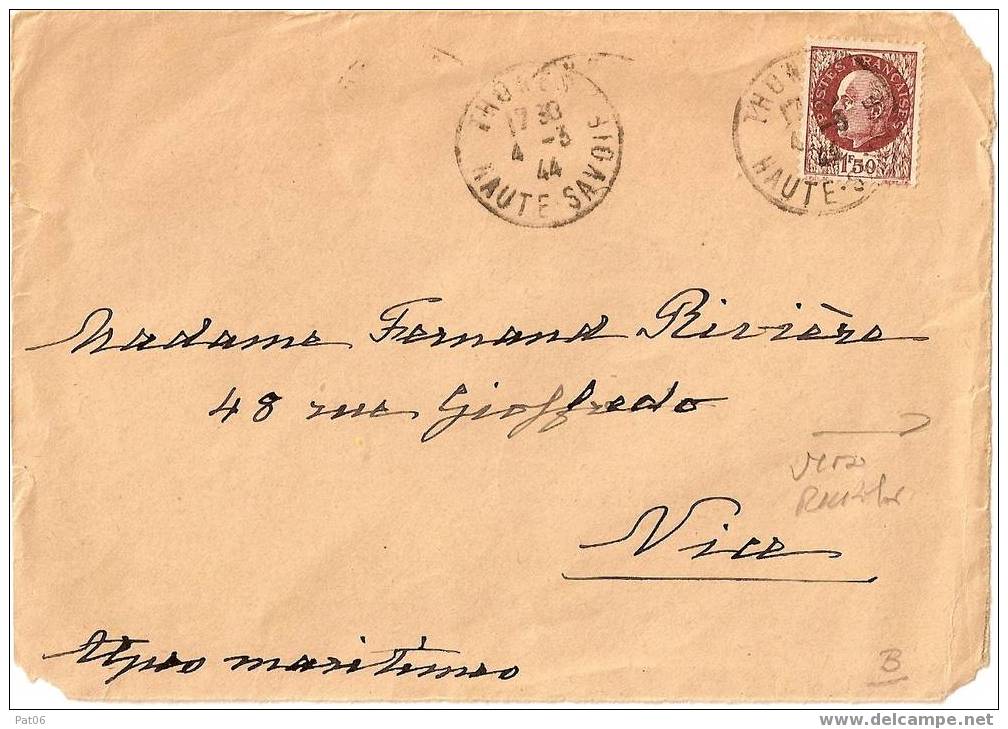 THONON
17 30
4 -3
44
HAUTE SAVOIE
THON
17
4
44
HAUTE-S
POSTES FRANÇAISES
1F50
Madame Fernand Rivière
48 rue Gioffredo
Nice
Alpes maritimes
B
Pat06
www.delcampe.net